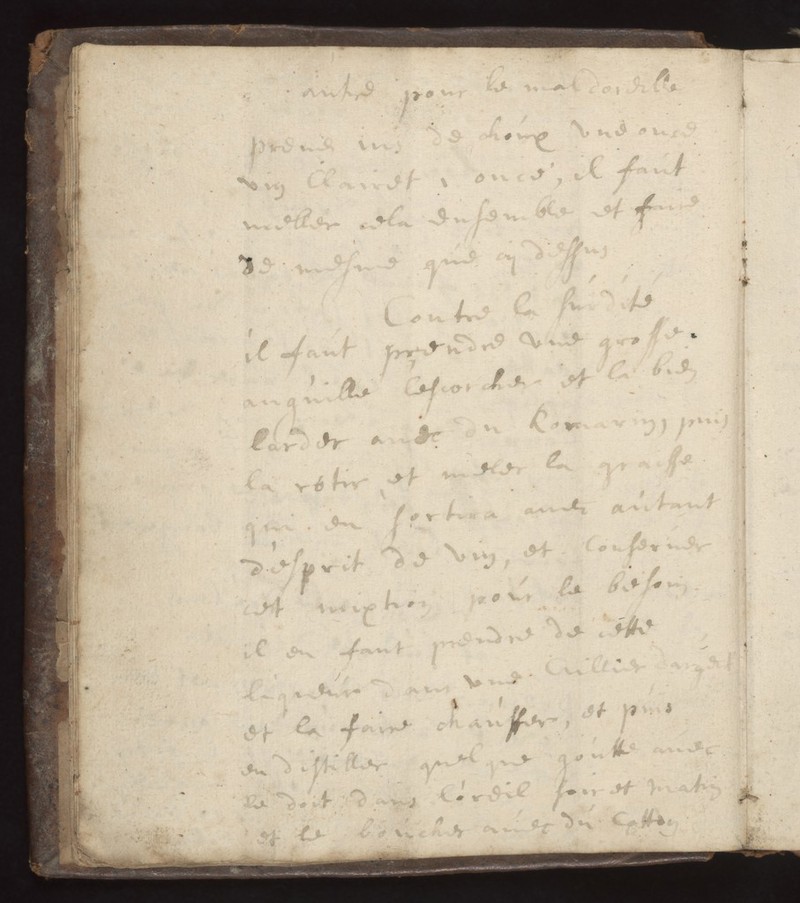 autre pour le mal doreille
prener ius de choux une once
vin Clairet 1 once, il faut
meller cela ensemble et faire
de mesme que cy dessus
Contre la surdité
il faut prendre une grosse
anguille lescorcher et la bien
larder avec du Romarin, puis
la rotir et meler la graisse
qui en sortira avec autant
d'esprit de vin, et conserver
cet mixtion pour le besoin
il en faut prendre de cette
liqueur dans une Cuillier dargent
et la faire chauffer, et puis
en distiller quelque goutte avec
le doit dans l'oreil soir et matin
et le boucher avec du Cotton